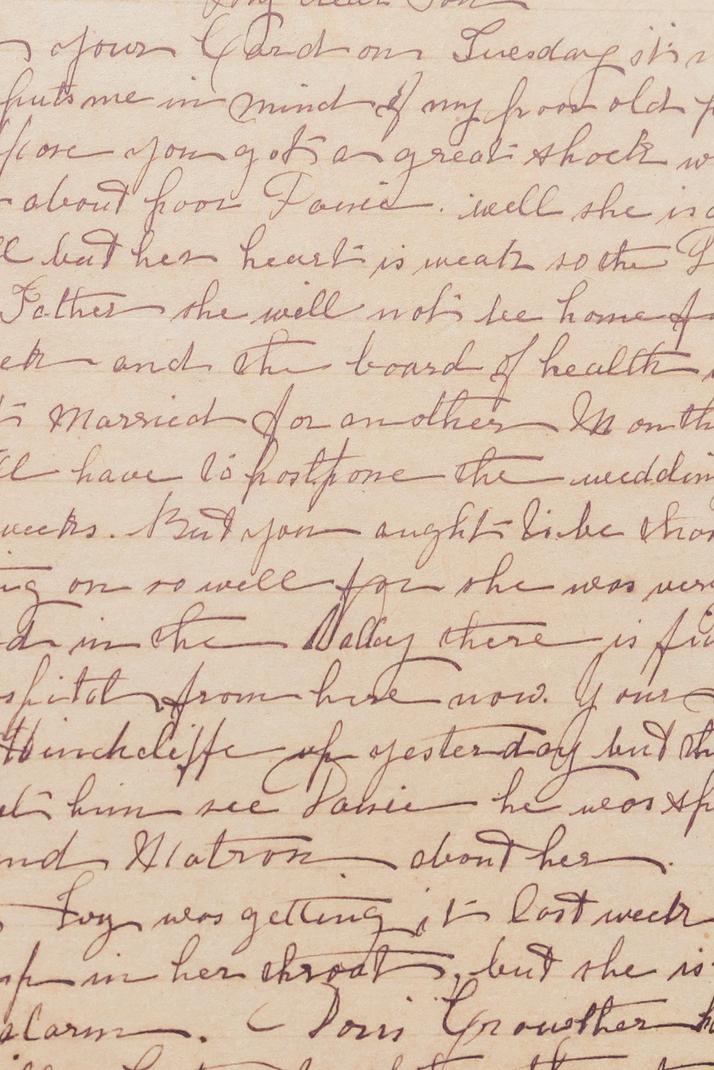 My dear Son
your Card on Tuesday it's
puts me in mind of my poor old
pose you got a great shock
about poor Janie. well she is
ll but her heart is weak so the
Father she will not be home
ek and the board of health
married for another Month
ll have to postpone the weddin
weeks. But you aught to be
ing on so well for she was very
d in the Valley there is
spital from here now. Your
Hinchcliffe up yesterday but th
et him see Janie he was sp
nd Matron about her.
Ivy was getting it last week
up in her throat, but she is
alarm. Doris Crowther